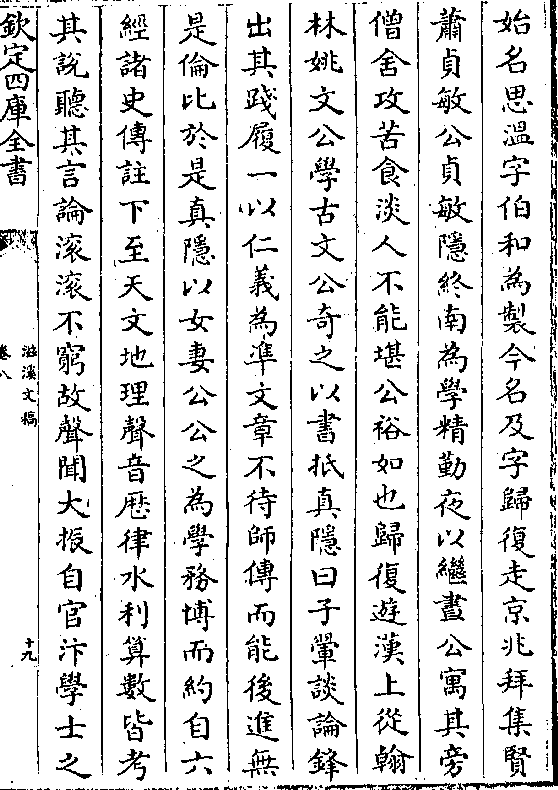 始名思溫字伯和為製今名及字歸復走京兆拜集賢
蕭貞敏公貞敏隱終南為學精勤夜以繼晝公寓其旁
僧舍攻苦食淡人不能堪公裕如也歸復遊漢上從翰
林姚文公學古文公奇之以書抵真隱曰子鞏談論鋒
出其踐履一以仁義為準文章不待師傳而能後進無
是倫比於是真隱以女妻公公之為學務博而約自六
經諸史傳註下至天文地理聲音歴律水利算數皆考
其說聽其言論滚滚不窮故聲聞大振自官汴學士之
欽定四庫全書
滋溪文稿
卷八
十九